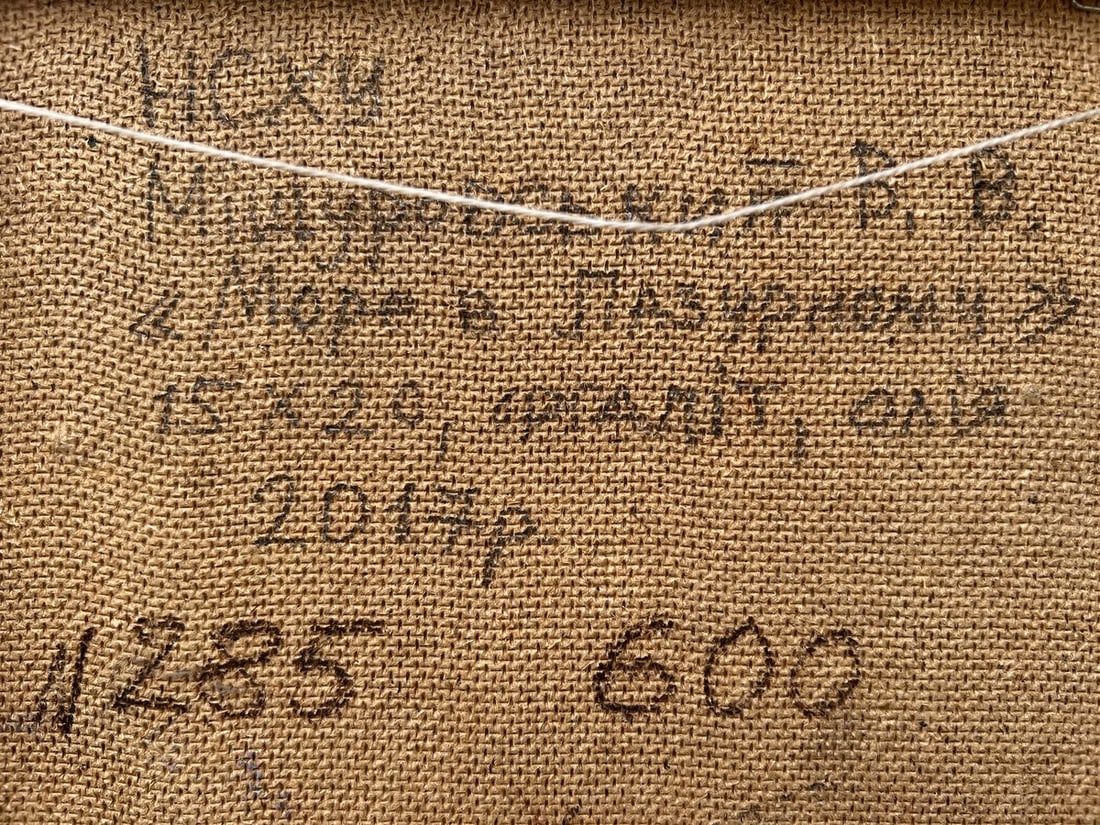 НСХУ
Мицуровський В. В.
« Море в Лазурному »
15 х 20, оргаліт, олія
2017р
N285 600